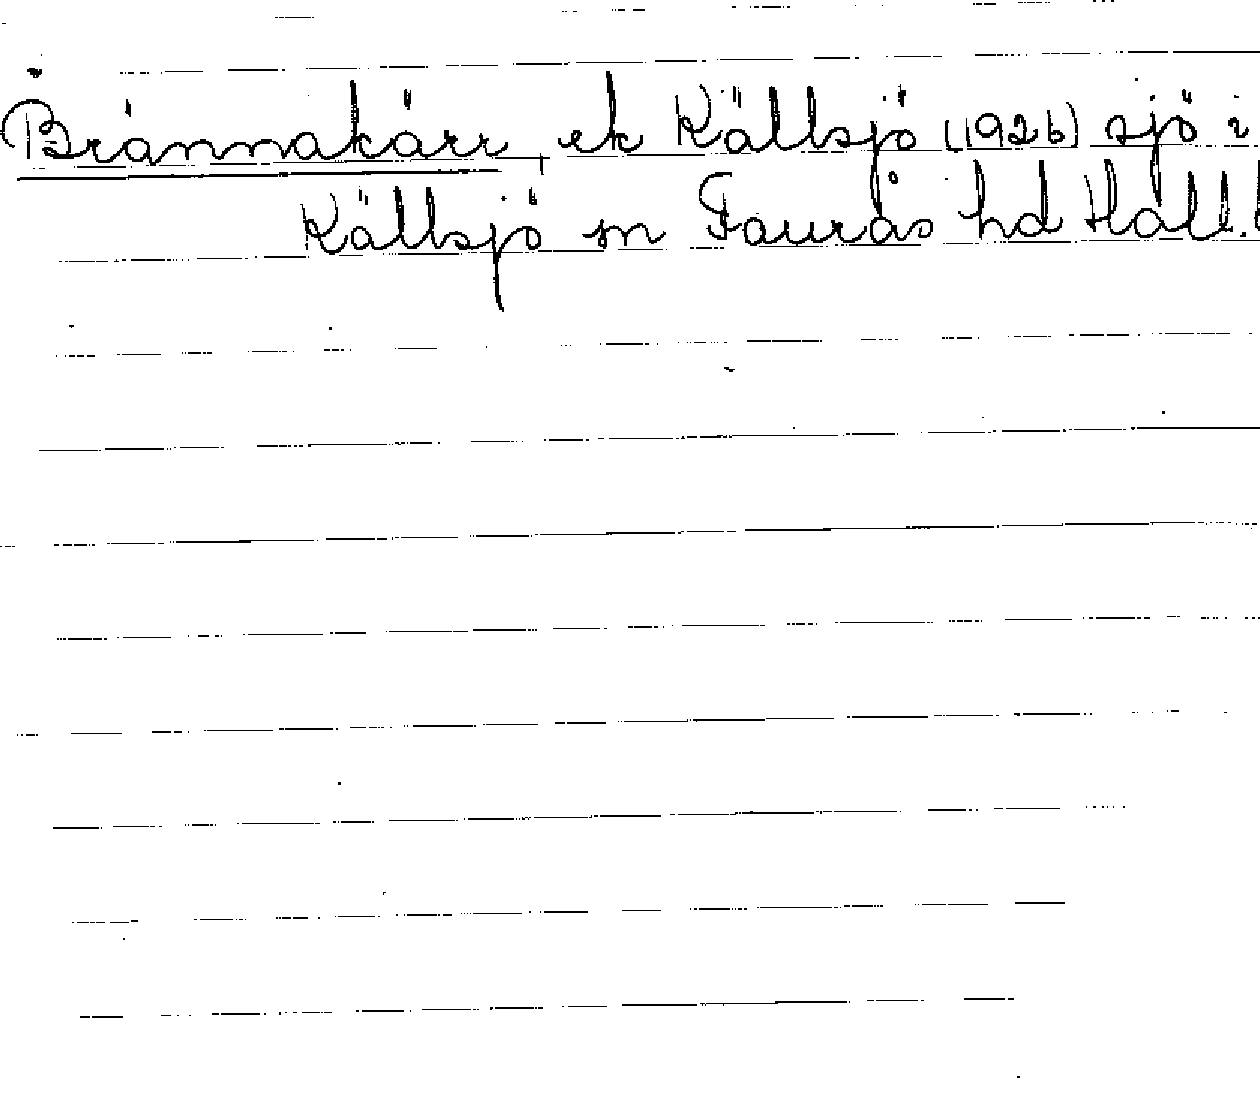 Brännakärr, ek Källsjö (1926) sjö i
Källsjö sn Faurås hd Hall.